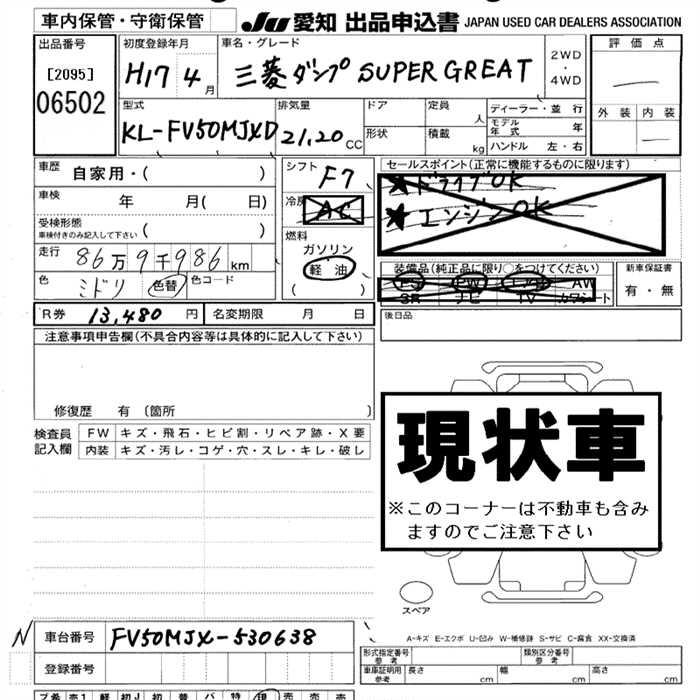 車内保管・守衛保管 JU 愛知 出品申込書 JAPAN USED CAR DEALERS ASSOCIATION
出品番号 初度登録年月 車名・グレード 2WD 評価点
[2095] H17 4月 三菱 ダンプ SUPER GREAT ・ 4WD
06502 型式 排気量 ドア 定員 人 ディーラー・並行 外装 内装
KL-FV50MJXD 21,20 CC 形状 積載 kg モデル年式 年
ハンドル 左・右
車歴 自家用・( ) シフト F7 セールスポイント(正常に機能するものに限ります)
車検 年 月( 日) 冷房 AC ★ドライブOK
受検形態 ( ) ★エンジンOK
車検付きのみ記入して下さい 燃料
走行 86万9千986km ガソリン 装備品(純品に限り○をつけてください) 新車保証書
色 ミドリ 色替 色コード 軽油 PS PW エアB AW 有・無
( ) SR ナビ TV カワシート
R券 13,480円 名変期限 月 日 後日品
注意事項申告欄(不具合内容等は具体的に記入して下さい)
修復歴 有〔箇所 〕
検査員記入欄 FW キズ・飛石・ヒビ割・リペア跡・X要
内装 キズ・汚レ・コゲ・穴・スレ・キレ・破レ
現状車
※このコーナーは不動車も含み
ますのでご注意下さい
スペア
A-キズ E-エクボ U-凹み W-補修跡 S-サビ C-腐食 XX-交換済
N 車台番号 FV50MJX-530638
型式指定番号 参考 類別区分番号 参考
登録番号 車庫証明用 参考 長さ cm 幅 cm 高さ cm